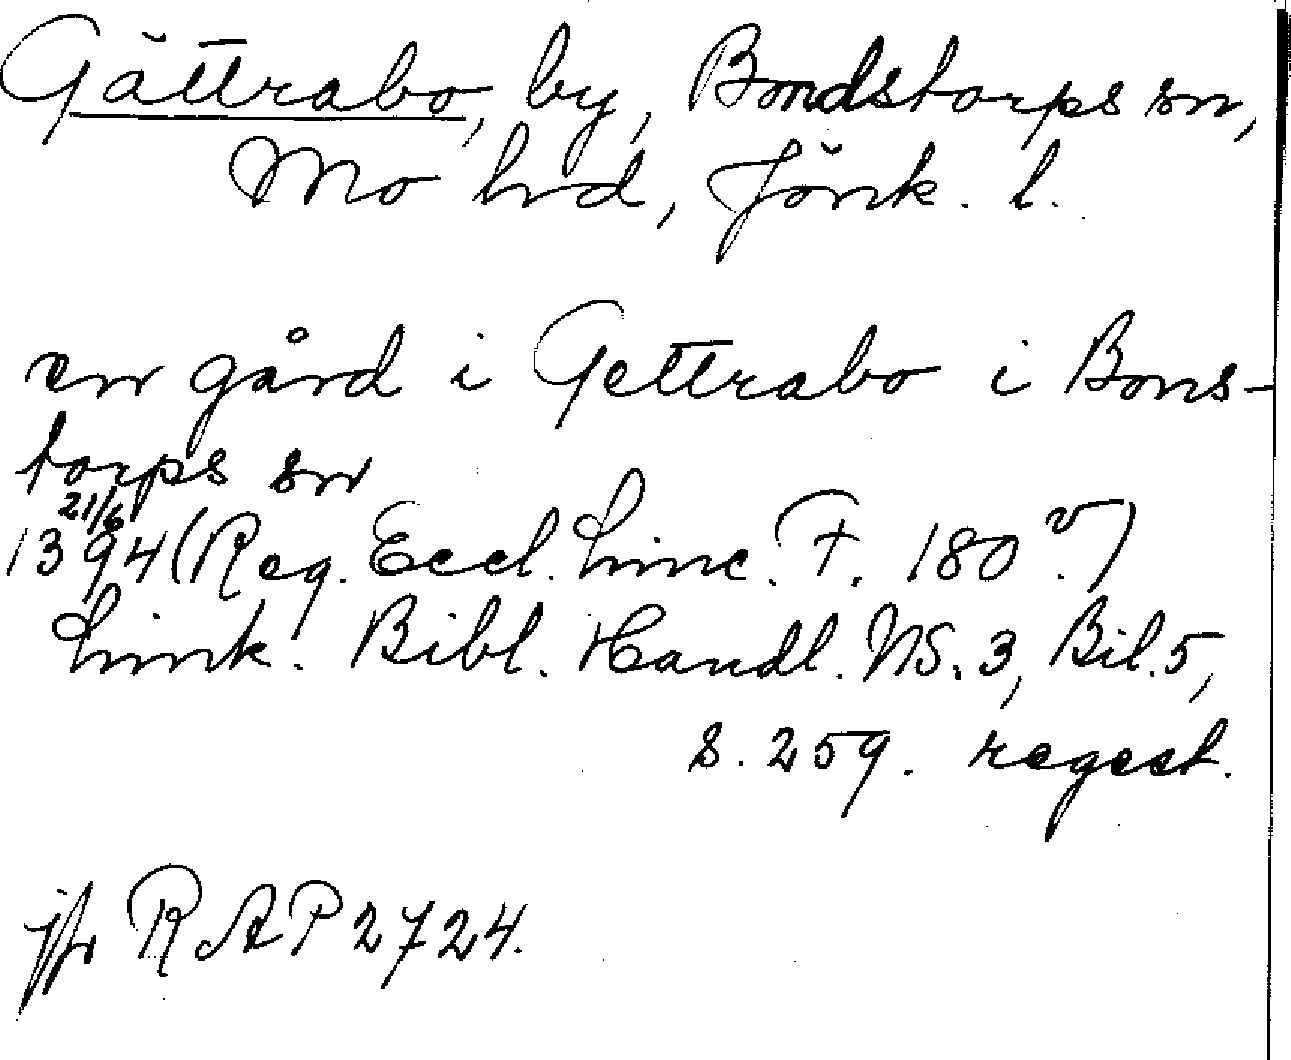 Gättrabo, by, Bondstorps sn,
Mo hrd, Jönk. l.
en gård i Gettrabo i Bons-
torps sn
21/6
1394 (Reg. Eccl. Linc. F. 180 v.)
Link. Bibl. Handl. NS. 3, Bil. 5,
s. 259. regest.
jfr RAP 2724.